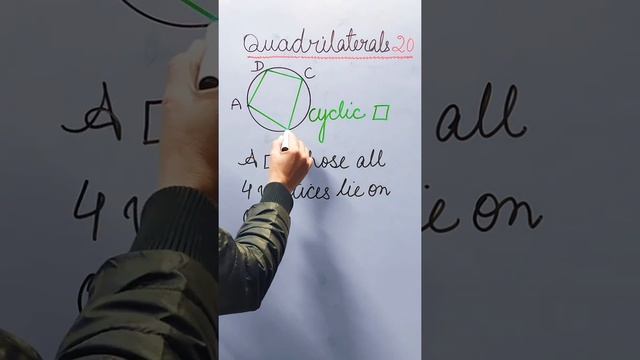 Quadrilaterals 20
D
C
A
cyclic □
A □ whose all
4 vertices lie on